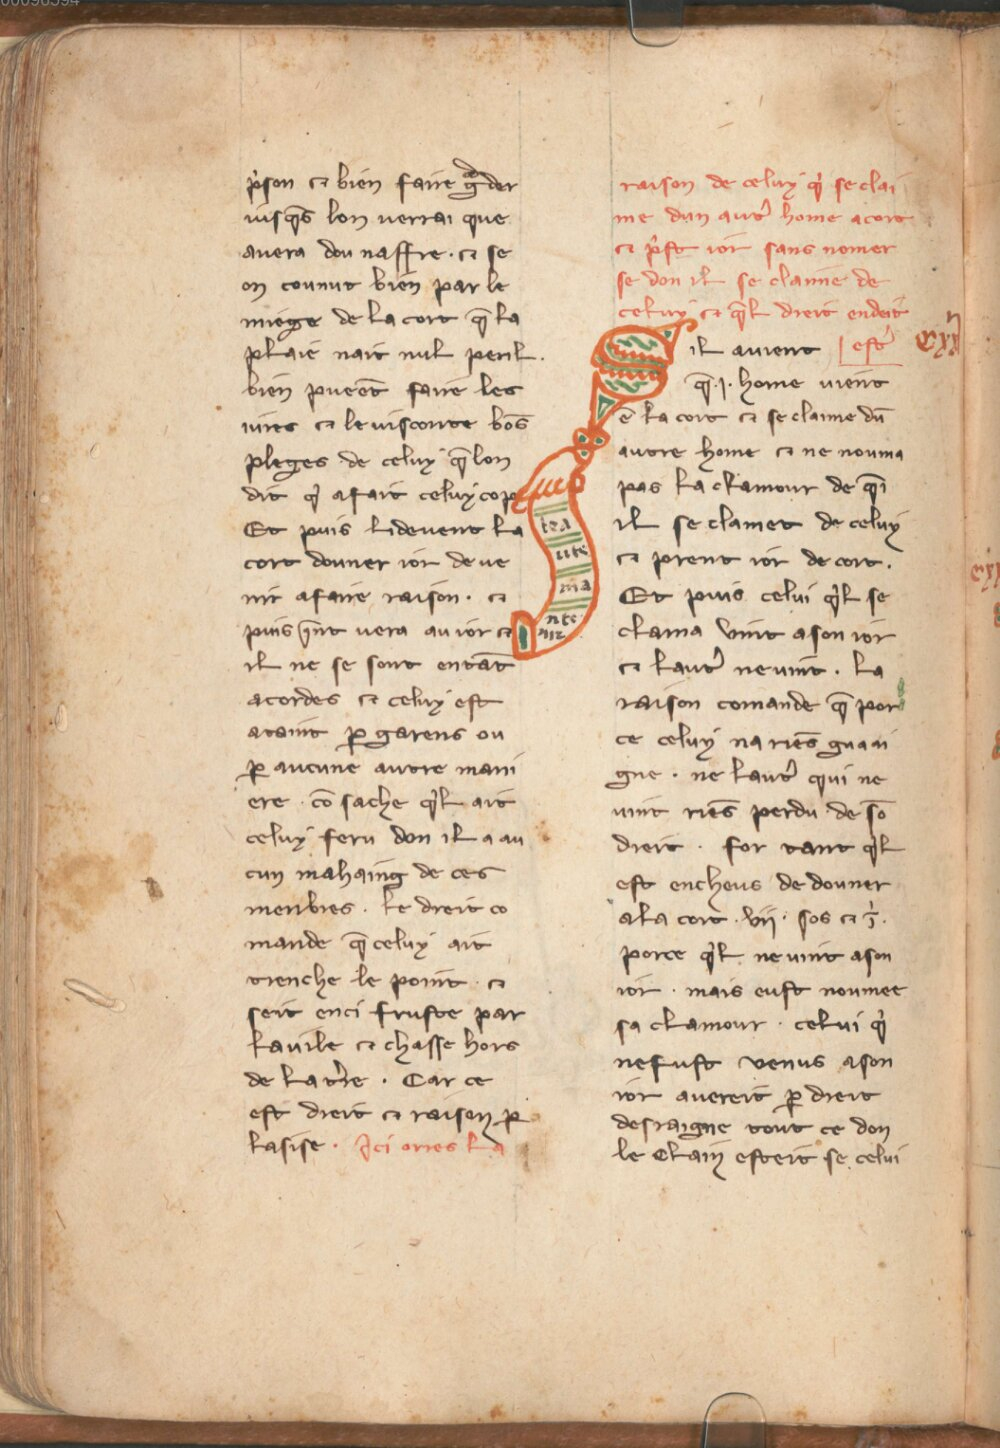 p'son ⁊ bien faire gͣder
iusq̄s lon uerrai que
auera dou naffre · ⁊ se
on counut bien par le
miege de la cort q̄ la
plaie nait nul peril ·
bien pueēt faire les
iures ⁊ le uisconte bōs
pleges de celuy q̄ lon
dit q' a fait celuy cop
Et puis li deuent la
cort douner ior de ue
nir a faire raison · ⁊
puis q̄nt uera au ior ⁊
il ne se sont entāt
acordes ⁊ celuy est
ataint ꝑ garens ou
ꝑ aucune autre mani
ere · cō sache q'l ait
celuy feru don il a au
cun mahaing de ces
menbres · le dreit co
mande q̄ celuy ait
trenche le point · ⁊
seit enci fruste par
la uile ⁊ chasse hors
de la t're · Car ce
est dreit ⁊ raison ꝑ
lasise · Ici orres la
raison de celuy q' se clai
me dun aut' home a cort
⁊ p'st ior sans nomer
se don il se claime de
celuy ⁊ q̄l dreit en deit
il auient [est'
q̄ · i · home uient
ē la cort ⁊ se claime dū
autre home ⁊ ne nouma
pas la clamour de q̄i
il se clamet de celuy
⁊ prent ior de cort ·
Et puis celui q'l se
clama uint a son ior
⁊ laut' ne uint · la
raison comande q̄ por
ce celuy na riēs guaai
gne · ne laut' qui ne
uint riēs perdu de sō
dreit · for tant q'l
est encheus de douner
a la cort · vii · sos ⁊ i ·
por ce q'l ne uint a son
ior · mais eust noumee
sa clamour · celui q'
ne fust venus a son
ior auereit ꝑ dreit
desraigne tout ce don
le Claim esteit se celui